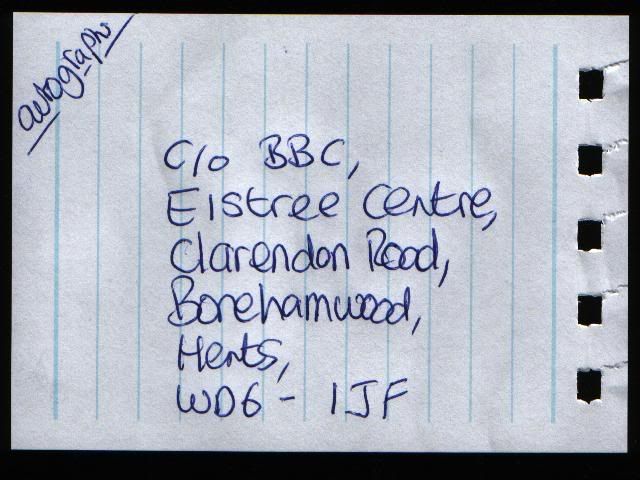 autograph
C/o BBC,
Elstree Centre,
Clarendon Road,
Borehamwood,
Herts,
WD6 - 1JF